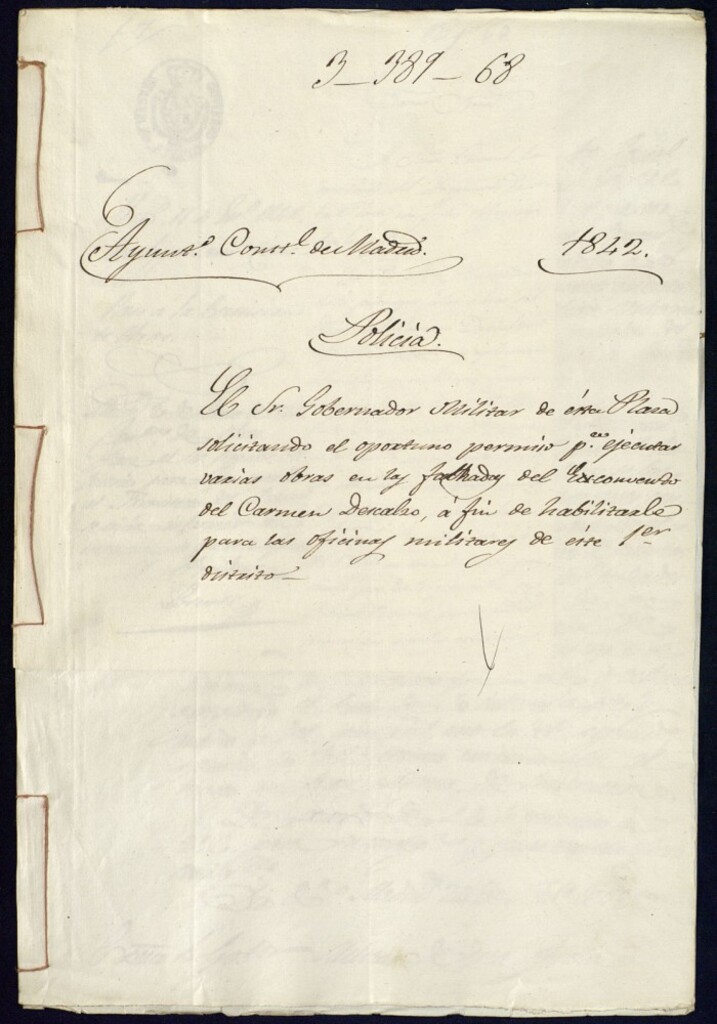 3_389_68
Ayunt.º Const.l de Madrid. 1842.
Policia.
El Sr. Gobernador Militar de ésta Plaza
solicitando el oportuno permiso p.ª ejecutar
varias obras en las fachadas del Exconvento
del Carmen Descalzo, á fin de habilitarle
para las oficinas militares de éste 1er
distrito_